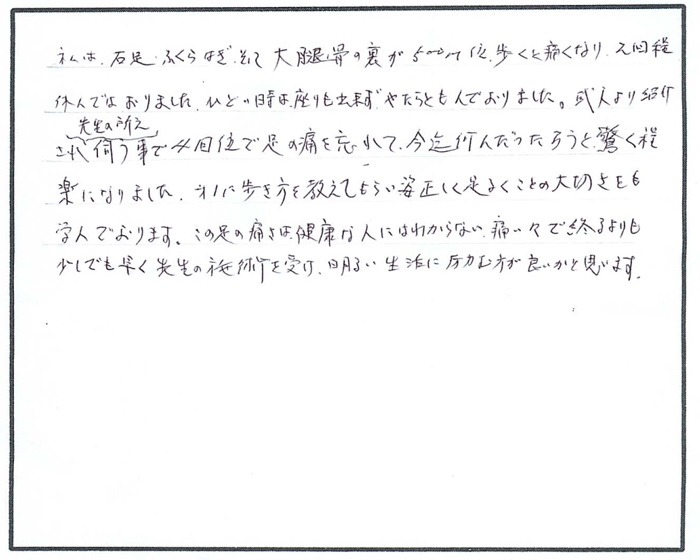 私は、右足、ふくらはぎ、そして大腿骨の裏が500m位、歩くと痛くなり、2回程
休んでおりました。ひどい時は、座りも出来ず、やたらともんでおりました。或人より紹介
先生の所え
され伺う事で4回位で足の痛を忘れて、今迄何んだったろうと驚く程
楽になりました。それに歩き方を教えてもらい姿正しく足るくことの大切さをも
学んでおります。この足の痛さは、健康な人にはわからない、痛い々で終るよりも
少しでも早く先生の施術を受け、明るい生活に努力む方が良いかと思います。